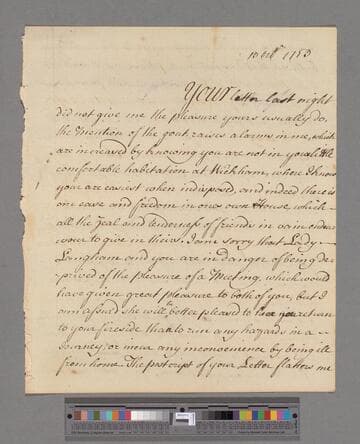 10 octr 1753
Your letter last night
did not give me the pleasure yours usually do,
the mention of the gout raises alarms in me, which
are increased by knowing you are not in your little
comfortable habitation at Wickham, where I know
you are easiest when indisposed, and indeed there is
an ease and freedom in ones own House which
all the Zeal and tenderness of friends in vain endea
vour to give in theirs. I am sorry that Lady
Langham and you are in danger of being de
prived of the pleasure of a Meeting, which would
have given great pleasure to both of you, but I
am assured she will be better pleased to have you return
to your fireside than to run any hazards in a
Journey, or incur any inconvenience by being ill
from home. The postcript of your Letter flatters me